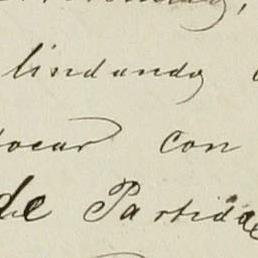 lindando
tocar con
de Partida